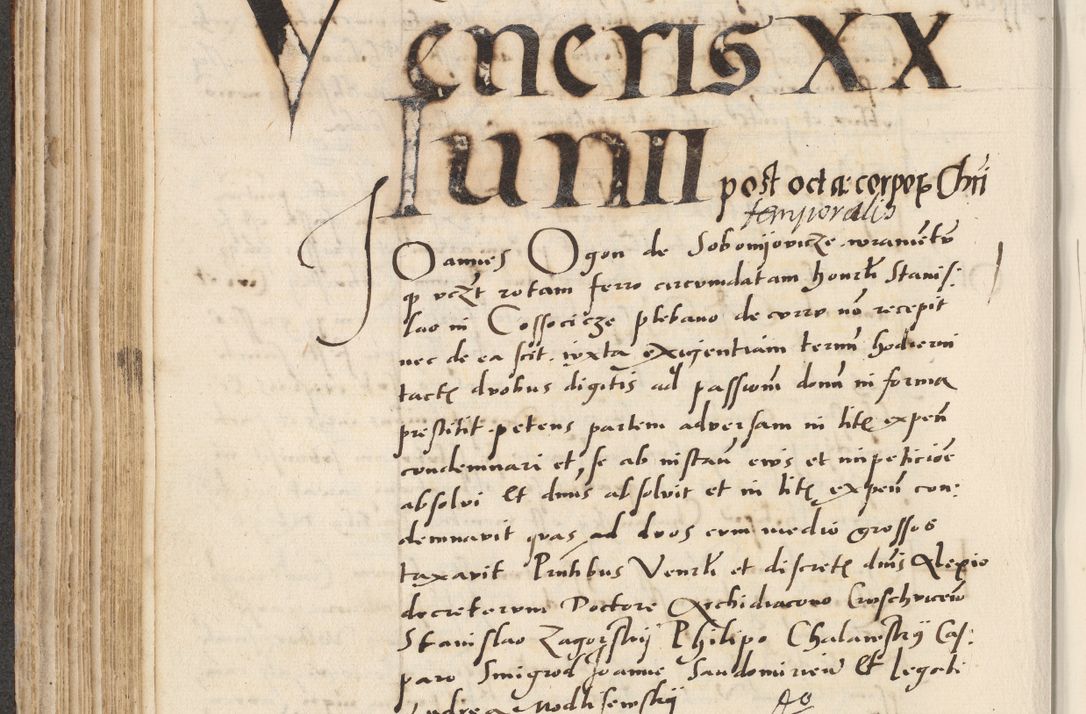 Veneris XX
Iunii post octa: corporis Chri
temporalis
Joannes Ogon de Sobonijovicze iuramentum
quod uczt rotam ferro circumdatam honrli Stanis:
lao in Cossocicze plebano de curru non recepit
nec de ea scit iuxta exigentiam termi hodierni
tactis duobus digitis ad passionem domi in forma
prestitit petens partem adversam in litis expen
condemnari et se ab instan eius et impeticione
absolvi Et dnus absolvit et in litis expen con:
demnavit quas ad duos cum medio grossos
taxavit Pntibus Venerli et discretis dnis Alexio
decretorum Doctore Archidiacono Cruschvicen
Stanislao Zagorskij Philipo Chalawskij Cas:
paro Smigrod Joanne Sandomirien Et legati
Andrea Modlisewskij